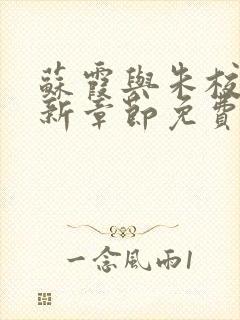 蘇霞與朱校
新章節免費
一念風雨1